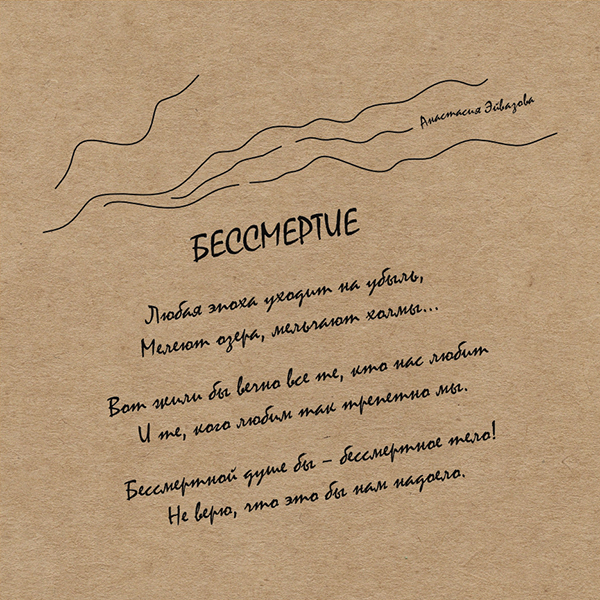 Анастасия Эйвазова
БЕССМЕРТИЕ
Любая эпоха уходит на убыль,
Мелеют озера, мельчают холмы...
Вот жили бы вечно все те, кто нас любит
И те, кого любим так трепетно мы.
Бессмертной душе бы – бессмертное тело!
Не верю, что это бы нам надоело.